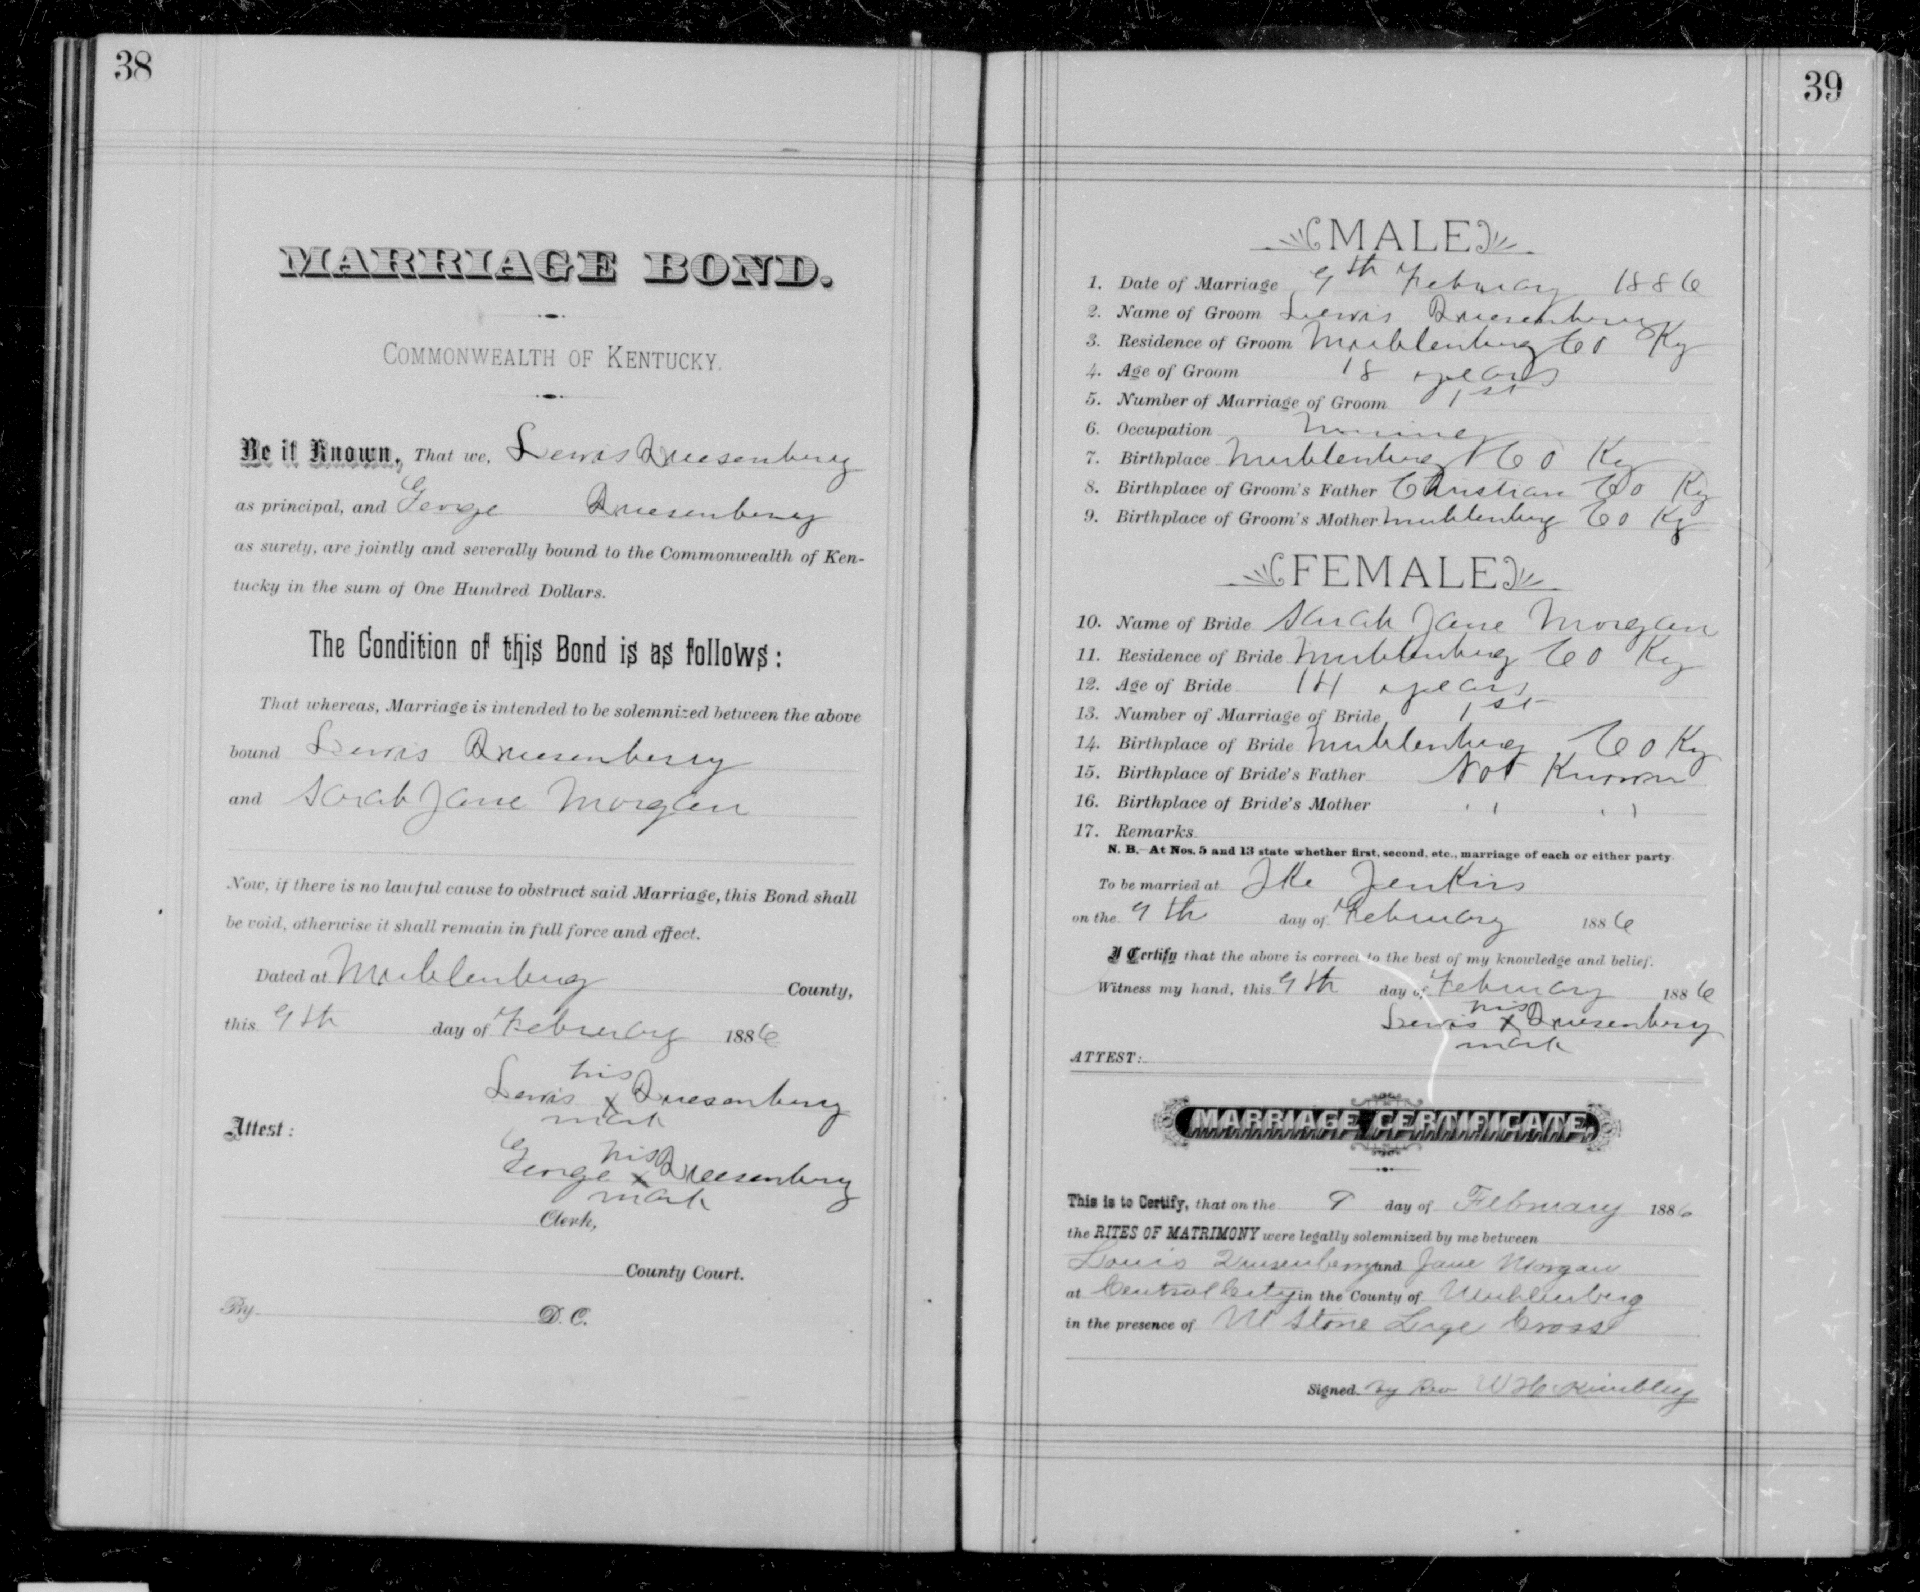 38
MARRIAGE BOND.
COMMONWEALTH OF KENTUCKY.
Be it Known, That we, Lewis Quesenberry
as principal, and George Quesenberry
as surety, are jointly and severally bound to the Commonwealth of Ken-
tucky in the sum of One Hundred Dollars.
The Condition of this Bond is as follows:
That whereas, Marriage is intended to be solemnized between the above
bound Lewis Quesenberry
and Sarah Jane Morgan
Now, if there is no lawful cause to obstruct said Marriage, this Bond shall
be void, otherwise it shall remain in full force and effect.
Dated at Muhlenburg County,
this 9th day of February 1886
his
Lewis x Quesenberry
mark
Attest:
his
George x Quesenberry
mark
Clerk,
County Court.
By D. C.
39
MALE
1. Date of Marriage 9th February 1886
2. Name of Groom Lewis Quesenberry
3. Residence of Groom Muhlenburg Co Ky
4. Age of Groom 18 years
5. Number of Marriage of Groom 1st
6. Occupation Miner
7. Birthplace Muhlenburg Co Ky
8. Birthplace of Groom's Father Christian Co Ky
9. Birthplace of Groom's Mother Muhlenburg Co Ky
FEMALE
10. Name of Bride Sarah Jane Morgan
11. Residence of Bride Muhlenburg Co Ky
12. Age of Bride 14 years
13. Number of Marriage of Bride 1st
14. Birthplace of Bride Muhlenburg Co Ky
15. Birthplace of Bride's Father Not Known
16. Birthplace of Bride's Mother " "
17. Remarks
N. B.—At Nos. 5 and 13 state whether first, second, etc., marriage of each or either party
To be married at Ike Jenkins
on the 9th day of February 1886
I Certify that the above is correct to the best of my knowledge and belief.
Witness my hand, this 9th day of February 1886
his
Lewis x Quesenberry
mark
ATTEST:
MARRIAGE CERTIFICATE.
This is to Certify, that on the 9 day of February 1886
the RITES OF MATRIMONY were legally solemnized by me between
Louis Qusenberry and Jane Morgan
at Central City in the County of Muhlenberg
in the presence of Stone Cross
Signed by Rev W H Kimbley